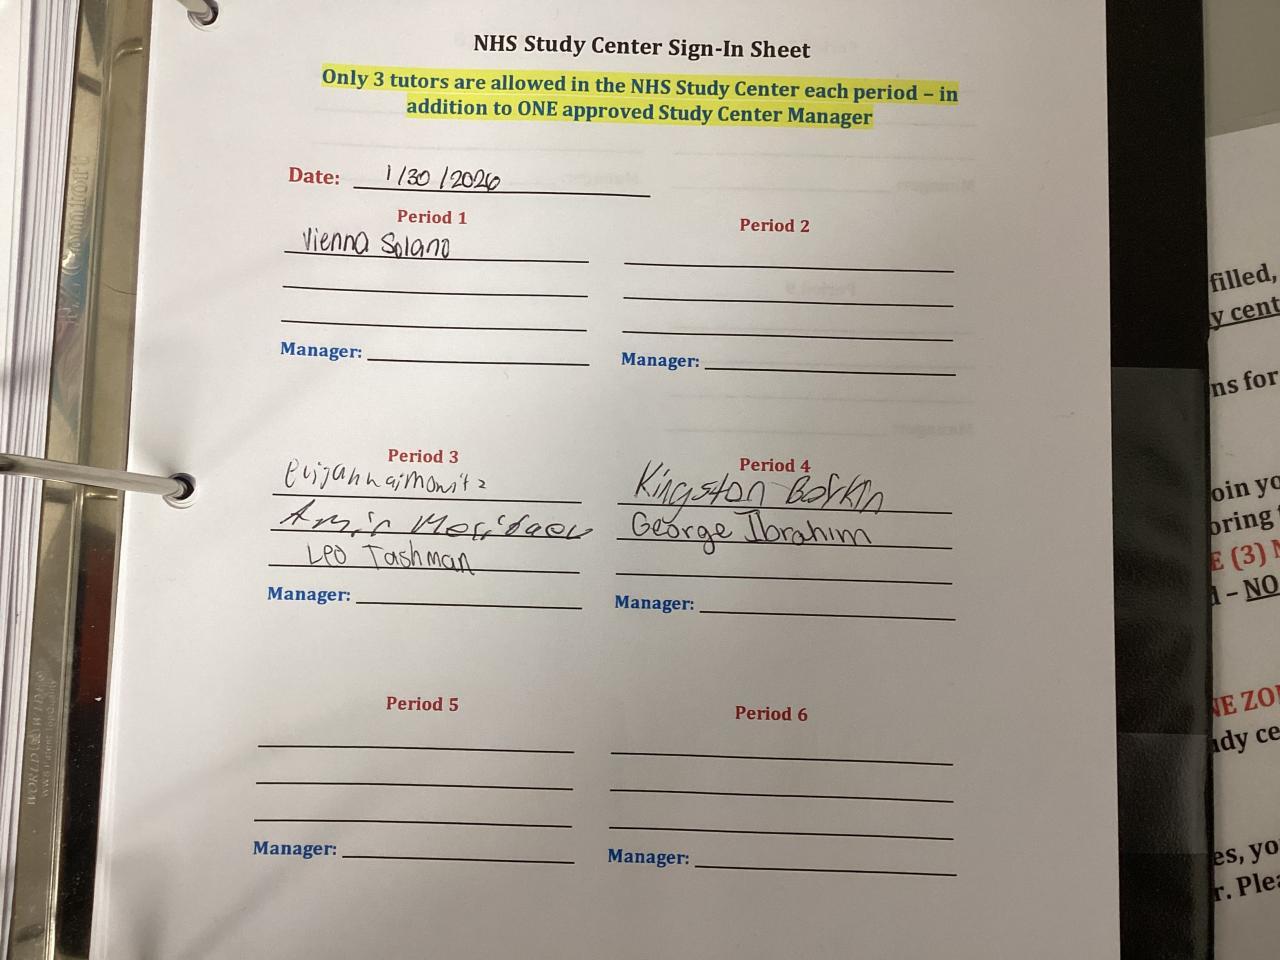 NHS Study Center Sign-In Sheet
Only 3 tutors are allowed in the NHS Study Center each period – in
addition to ONE approved Study Center Manager
Date: 1/30/2026
Period 1
Vienna Solano
Manager:
Period 2
Manager:
Period 3
Elijah Haimowitz
Amir
Leo Tashman
Manager:
Period 4
Kingston Borkin
George Ibrahim
Manager:
Period 5
Manager:
Period 6
Manager:
filled,
y cent
ns for
oin yo
oring
E (3) N
– NO
NE ZO
udy ce
es, yo
r. Plea
WORLD